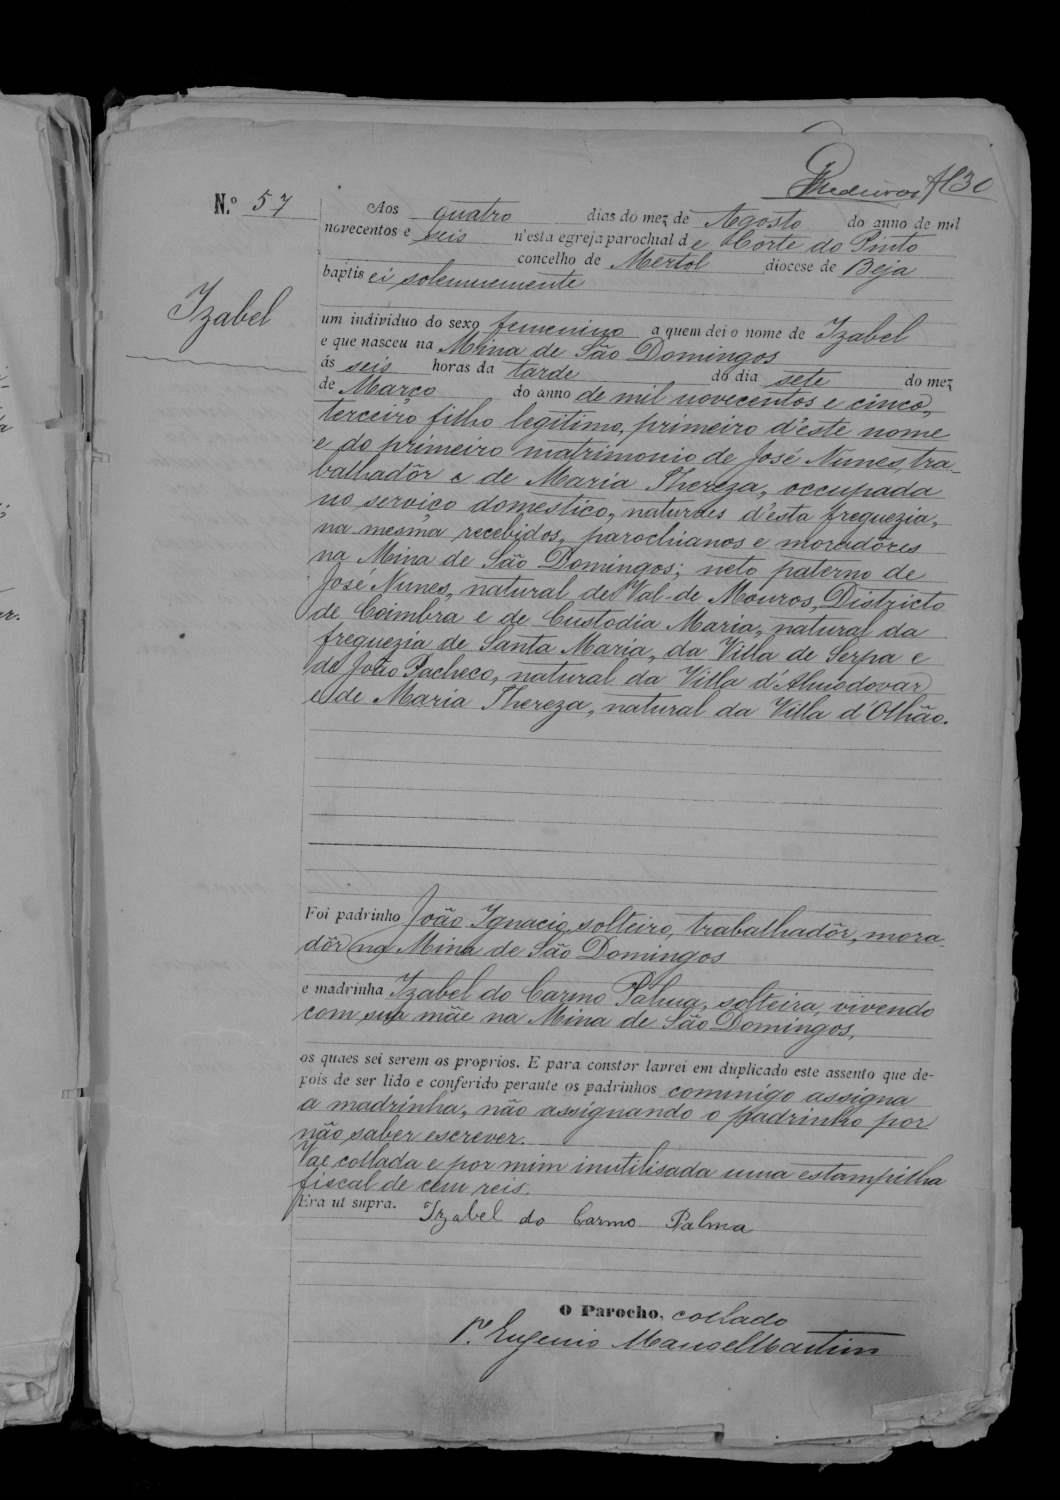 fl 30
N.º 57
Aos quatro dias do mez de Agosto do anno de mil
novecentos e seis n'esta egreja parochial de Côrte do Pinto
concelho de Mertol diocese de Beja
baptisei solemnemente
Izabel
um individuo do sexo femenino a quem dei o nome de Izabel
e que nasceu na Mina de São Domingos
ás seis horas da tarde do dia sete do mez
de Março do anno de mil novecentos e cinco,
terceiro filho legitimo, primeiro d'este nome
e do primeiro matrimonio de José Nunes, tra-
balhadôr e de Maria Thereza, occupada
no serviço domestico, naturaes d'esta freguezia,
na mesma recebidos, parochianos e moradôres
na Mina de São Domingos; neto paterno de
José Nunes, natural de Val de Mouros, Districto
de Coimbra e de Custodia Maria, natural da
freguezia de Santa Maria, da Villa de Serpa e
de João Pacheco, natural da Villa d'Almodovar
e de Maria Thereza, natural da Villa d'Olhão.
Foi padrinho João Ignacio, solteiro, trabalhadôr, mora-
dôr na Mina de São Domingos
e madrinha Izabel do Carmo Palma, solteira, vivendo
com sua mãe na Mina de São Domingos,
os quaes sei serem os proprios. E para constar lavrei em duplicado este assento que de-
pois de ser lido e conferido perante os padrinhos commigo assigna
a madrinha, não assignando o padrinho por
não saber escrever.
Vae collada e por mim inutilisada uma estampilha
fiscal de cem reis.
Era ut supra. Izabel do Carmo Palma
O Parocho, collado
P.e Eugenio Manoel Martins